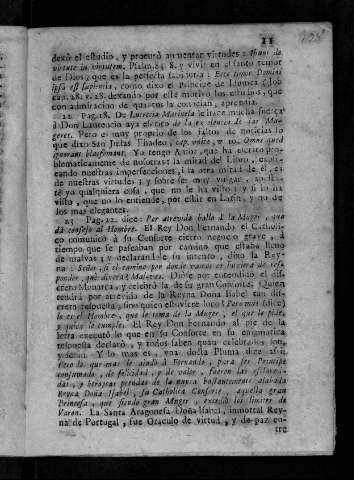 11
dexó el estudio, y procuró aumentar virtudes: Ibunt de
virtute in virtutem, Psalm. 8. y vivir en el santo temor
de Dios, que es la perfecta sabiduria: Ecce timor Domini
ipsa est sapientia, como dixo el Principe de Idumea (Job
cap. 28. v. 28. dexando por este motivo los estudios, que
con admiracion de quantos la conocian, aprendia.
22 Pag. 18. De Lucrecia Marinela le hace mucha fuerza
à Don Laurencio aya escrito de la excelencia de las Mu-
geres. Pero es muy proprio de los faltos de noticias lo
que dixo San Judas Thadeo, cap. unico, v. 10. Omne quod
ignorant blasfemant. Yo tengo Autor, que ha escrito pro-
blematicamente de nosotras: la mitad del Libro, expli-
cando nuestras imperfecciones, i la otra mitad de él, es
de nuestras virtudes; y sobre ser muy vulgar,
yo qualquiera cosa, que no le ha visto; y si lo ha
visto, que no lo entiende, por estár en Latin, y no de
los mas elegantes.
23 Pag. 22. dice: Por atrevida hallo à la Muger, que
dà consejo al Hombre. El Rey Don Fernando el Catholi-
co comunicó à su Consorte cierto negocio grave, à
tiempo que se paseaban por camino que estaba lleno
de malvas; y declarandole su intento, dixo la Rey-
na: Señor, si el camino por donde vamos
ponder, que dixera? Mal-vas. Diose por entendido el dis-
creto Monarca, y celebró la de su gran Consorte. Quien
tendrá por atrevida de la Reyna Doña Isabel tan dis-
creta respuesta, sino quien estuviere loco? Pero mas (dice)
lo es el Hombre, que le toma de la Muger, el que le pide,
y quien le cumple. El Rey Don Fernando al pie de la
letra executó lo que en su Consorte en su enigmatica
respuesta declaró, y todos saben quan celebrados son,
y serán. Y lo mas es, una docta Pluma dice assi:
Pero lo que mas le ayudó à Fernando, para ser Principe
consumado, de felicidad, y de valor, fueron las esclareci-
das, y heroycas prendas de la nunca bastantemente alabada
Reyna Doña Isabel, su Catholica Consorte, aquella gran
Princesa, que siendo gran Muger, excedió los limites de
Varon. La Santa Aragonesa Doña Isabel, immortal Rey-
na de Portugal, fue Oraculo de virtud, y de paz en-
tre